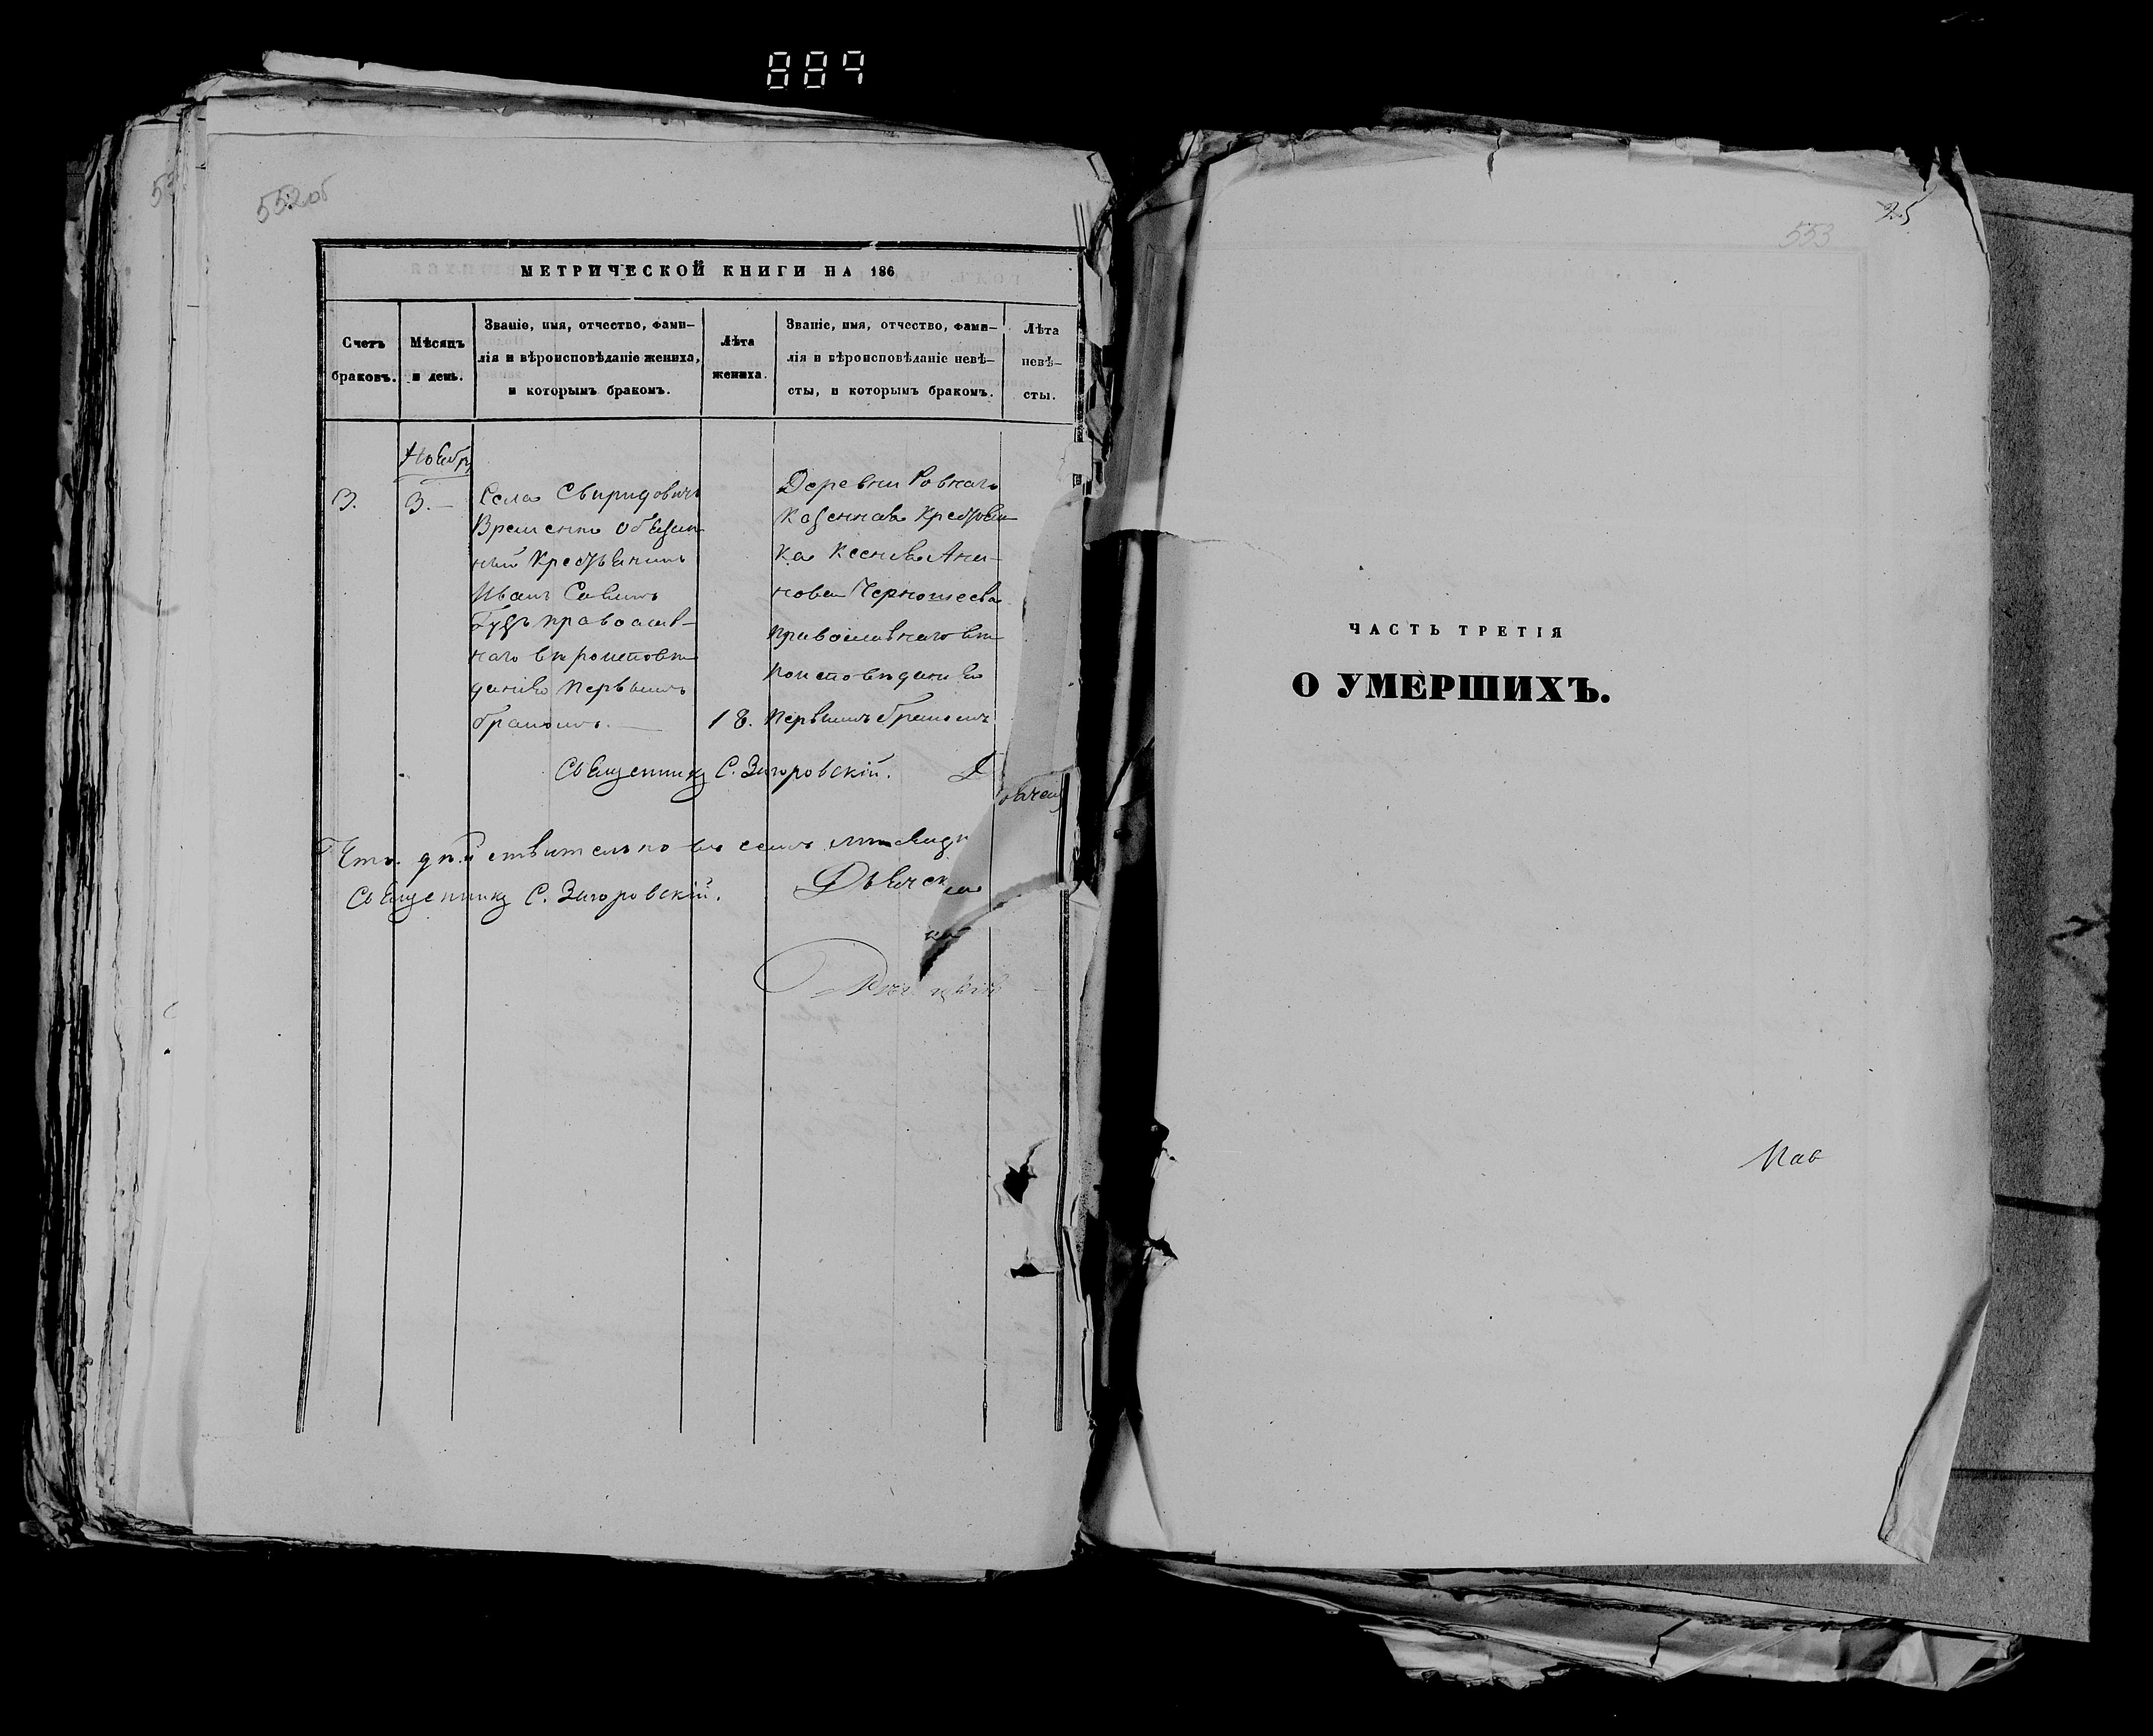 889
552 об
МЕТРИЧЕСКОЙ КНИГИ НА 186
Счетъ браковъ.
Мѣсяцъ и день.
Званіе, имя, отчество, фами-
лія и вѣроисповѣданіе жениха,
и которымъ бракомъ.
Лѣта жениха.
Званіе, имя, отчество, фами-
лія и вѣроисповѣданіе невѣ-
сты, и которымъ бракомъ.
Лѣта невѣ-
сты.
Ноябр
3.
3.
Села Свиридовичъ
Временно обязан
ный Крестьянинъ
Иванъ Савинъ
православ-
наго вѣроисповѣ
данія первымъ
бракомъ.
18.
Деревни Ровнаго
Казенная Крестьян
ка Ксенія
нова
православнаго вѣ
роисповѣданія
первымъ бракомъ
Священникъ С. Загоровскій.
Что дѣйствительно въ семъ
Священникъ С. Загоровскій.
553
ЧАСТЬ ТРЕТІЯ
О УМЕРШИХЪ.